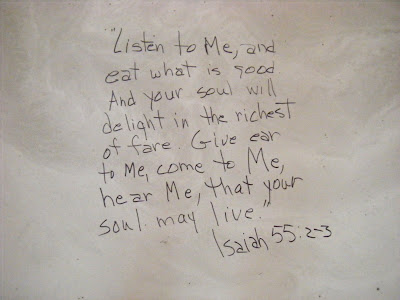 "Listen to Me, and
eat what is good
And your soul will
delight in the richest
of fare. Give ear
to Me, come to Me,
hear Me, that your
soul may live."
Isaiah 55:2-3